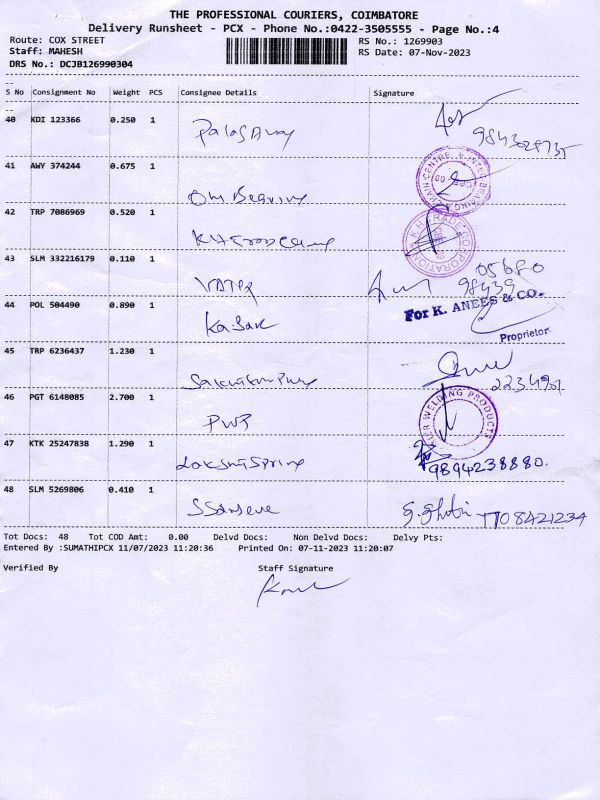 THE PROFESSIONAL COURIERS, COIMBATORE
Delivery Runsheet - PCX - Phone No.:0422-3505555 - Page No.:4
Route: COX STREET RS No.: 1269903
Staff: MAHESH RS Date: 07-Nov-2023
DRS No.: DCJB126990304
S No Consignment No Weight PCS Consignee Details Signature
40 KDI 123366 0.250 1
41 AWY 374244 0.675 1
Om Bearing
42 TRP 7086969 0.520 1
43 SLM 332216179 0.110 1
05680
98439
44 POL 504490 0.890 1
For K. ANEES & CO.
Proprietor
45 TRP 6236437 1.230 1
46 PGT 6148085 2.700 1
PWR
WELDING PRODUCTS
47 KTK 25247838 1.290 1
Lakshmi Spring 9894238880.
48 SLM 5269806 0.410 1
7708421234
Tot Docs: 48 Tot COD Amt: 0.00 Delvd Docs: Non Delvd Docs: Delvy Pts:
Entered By :SUMATHIPCX 11/07/2023 11:20:36 Printed On: 07-11-2023 11:20:07
Verified By Staff Signature